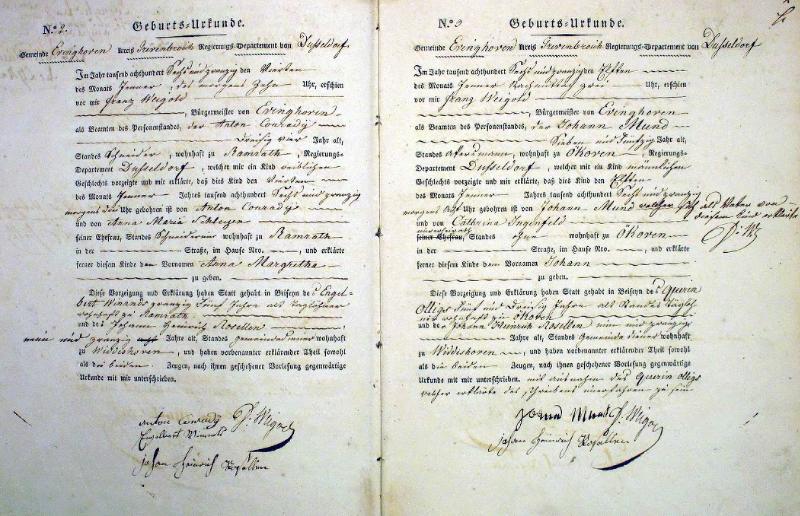 Nº 2. Geburts-Urkunde.
Gemeinde Evinghoven Kreis Grevenbroich Regierungs-Departement von Dusseldorf
Im Jahr tausend achthundert Sechs und zwanzig den Vierten
des Monats Jenner, des morgens Zehn Uhr, erschien
vor mir Franz Weigold
, Bürgermeister von Evinghoven
als Beamten des Personenstandes, der Anton Conrady
Dreisig vier Jahr alt,
Standes Schneider, wohnhaft zu Ramrath, Regierungs-
Departement Dusseldorf, welcher mir ein Kind weiblichen
Geschlechts vorzeigte und mir erklärte, daß dies Kind den Vierten
des Monats Jenner Jahres tausend achthundert Sechs und zwanzig
morgens Uhr gebohren ist von Anton Conrady
und von Anna Maria
seiner Ehefrau, Standes Schneiderinn wohnhaft zu Ramrath
in der Straße, im Hause Nro. und erklärte
ferner diesem Kinde den Vornamen Anna Margretha
zu geben.
Diese Vorzeigung und Erklärung haben Statt gehabt in Beiseyn des Engel-
bert Winands zwanzig Fünf Jahre alt Taglöhner
wohnhaft zu Ramrath
und des Johann Heinrich Rosellen
neun und zwanzig Jahre alt, Standes Gemeindediener wohnhaft
zu Widdeshoven, und haben vorbenannter erklärender Theil sowohl
als die beiden Zeugen, nach ihnen geschehener Vorlesung gegenwärtige
Urkunde mit mir unterschrieben.
Anton Conrady Fr. Weigold
Engelbert Winands
Johan Heinrich Rosellen
Nº 3 Geburts-Urkunde.
Gemeinde Evinghoven Kreis Grevenbroich Regierungs-Departement von Dusseldorf
Im Jahr tausend achthundert Sechs und zwanzig den Elften
des Monats Jenner Nachmittag zwei Uhr, erschien
vor mir Franz Weigold
, Bürgermeister von Evinghoven
als Beamten des Personenstandes, der Johann Mund
Sieben und Funfzig Jahr alt,
Standes Akersmann, wohnhaft zu Ökoven, Regierungs-
Departement Dusseldorf, welcher mir ein Kind männlichen
Geschlechts vorzeigte und mir erklärte, daß dies Kind den Elften
des Monats Jenner Jahres tausend achthundert Sechs und zwanzig
morgens acht Uhr gebohren ist von Johann Mund welcher sich als Vater von
diesem Kind erklärte
und von Catharina Ingenfeld
Fr. W
seiner Ehefrau, Standes ohne wohnhaft zu Ökoven
in der Straße, im Hause Nro. und erklärte
ferner diesem Kinde dem Vornamen Johann
zu geben.
Diese Vorzeigung und Erklärung haben Statt gehabt in Beiseyn des Quirin
Olligs Fünf und Dreisig Jahre alt Standes Taglöh-
ner wohnhaft zu Ökoven
und des Johann Heinrich Rosellen neun und zwanzig
Jahre alt, Standes Gemeinde diener wohnhaft
zu Widdeshoven, und haben vorbenannter erklärender Theil sowohl
als die beiden Zeugen, nach ihnen geschehener Vorlesung gegenwärtige
Urkunde mit mir unterschrieben. mit ausnahm des Quirin Olligs
welcher erklärte des schreibens unerfahren zu sein
Johann Mund Fr. Weigold
Johan Heinrich Rosellen